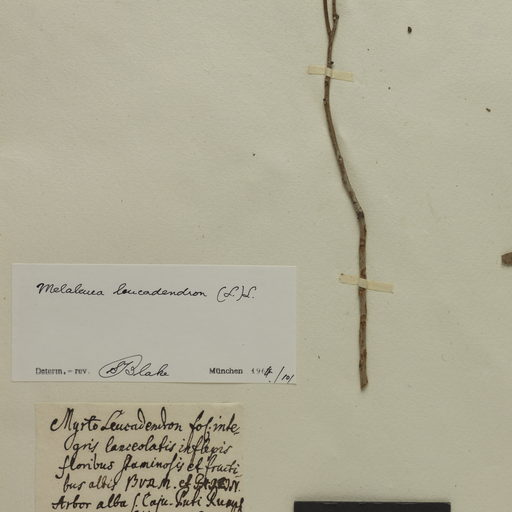 Melaleuca leucadendron (L.) L.
Determ.,-rev. STBlake München 196
Myrto Leucadendron fol. inte-
gris lanceolatis inflexis
floribus staminosis et fructi
bus albis
Arbor alba s. Caju Puti Rumph